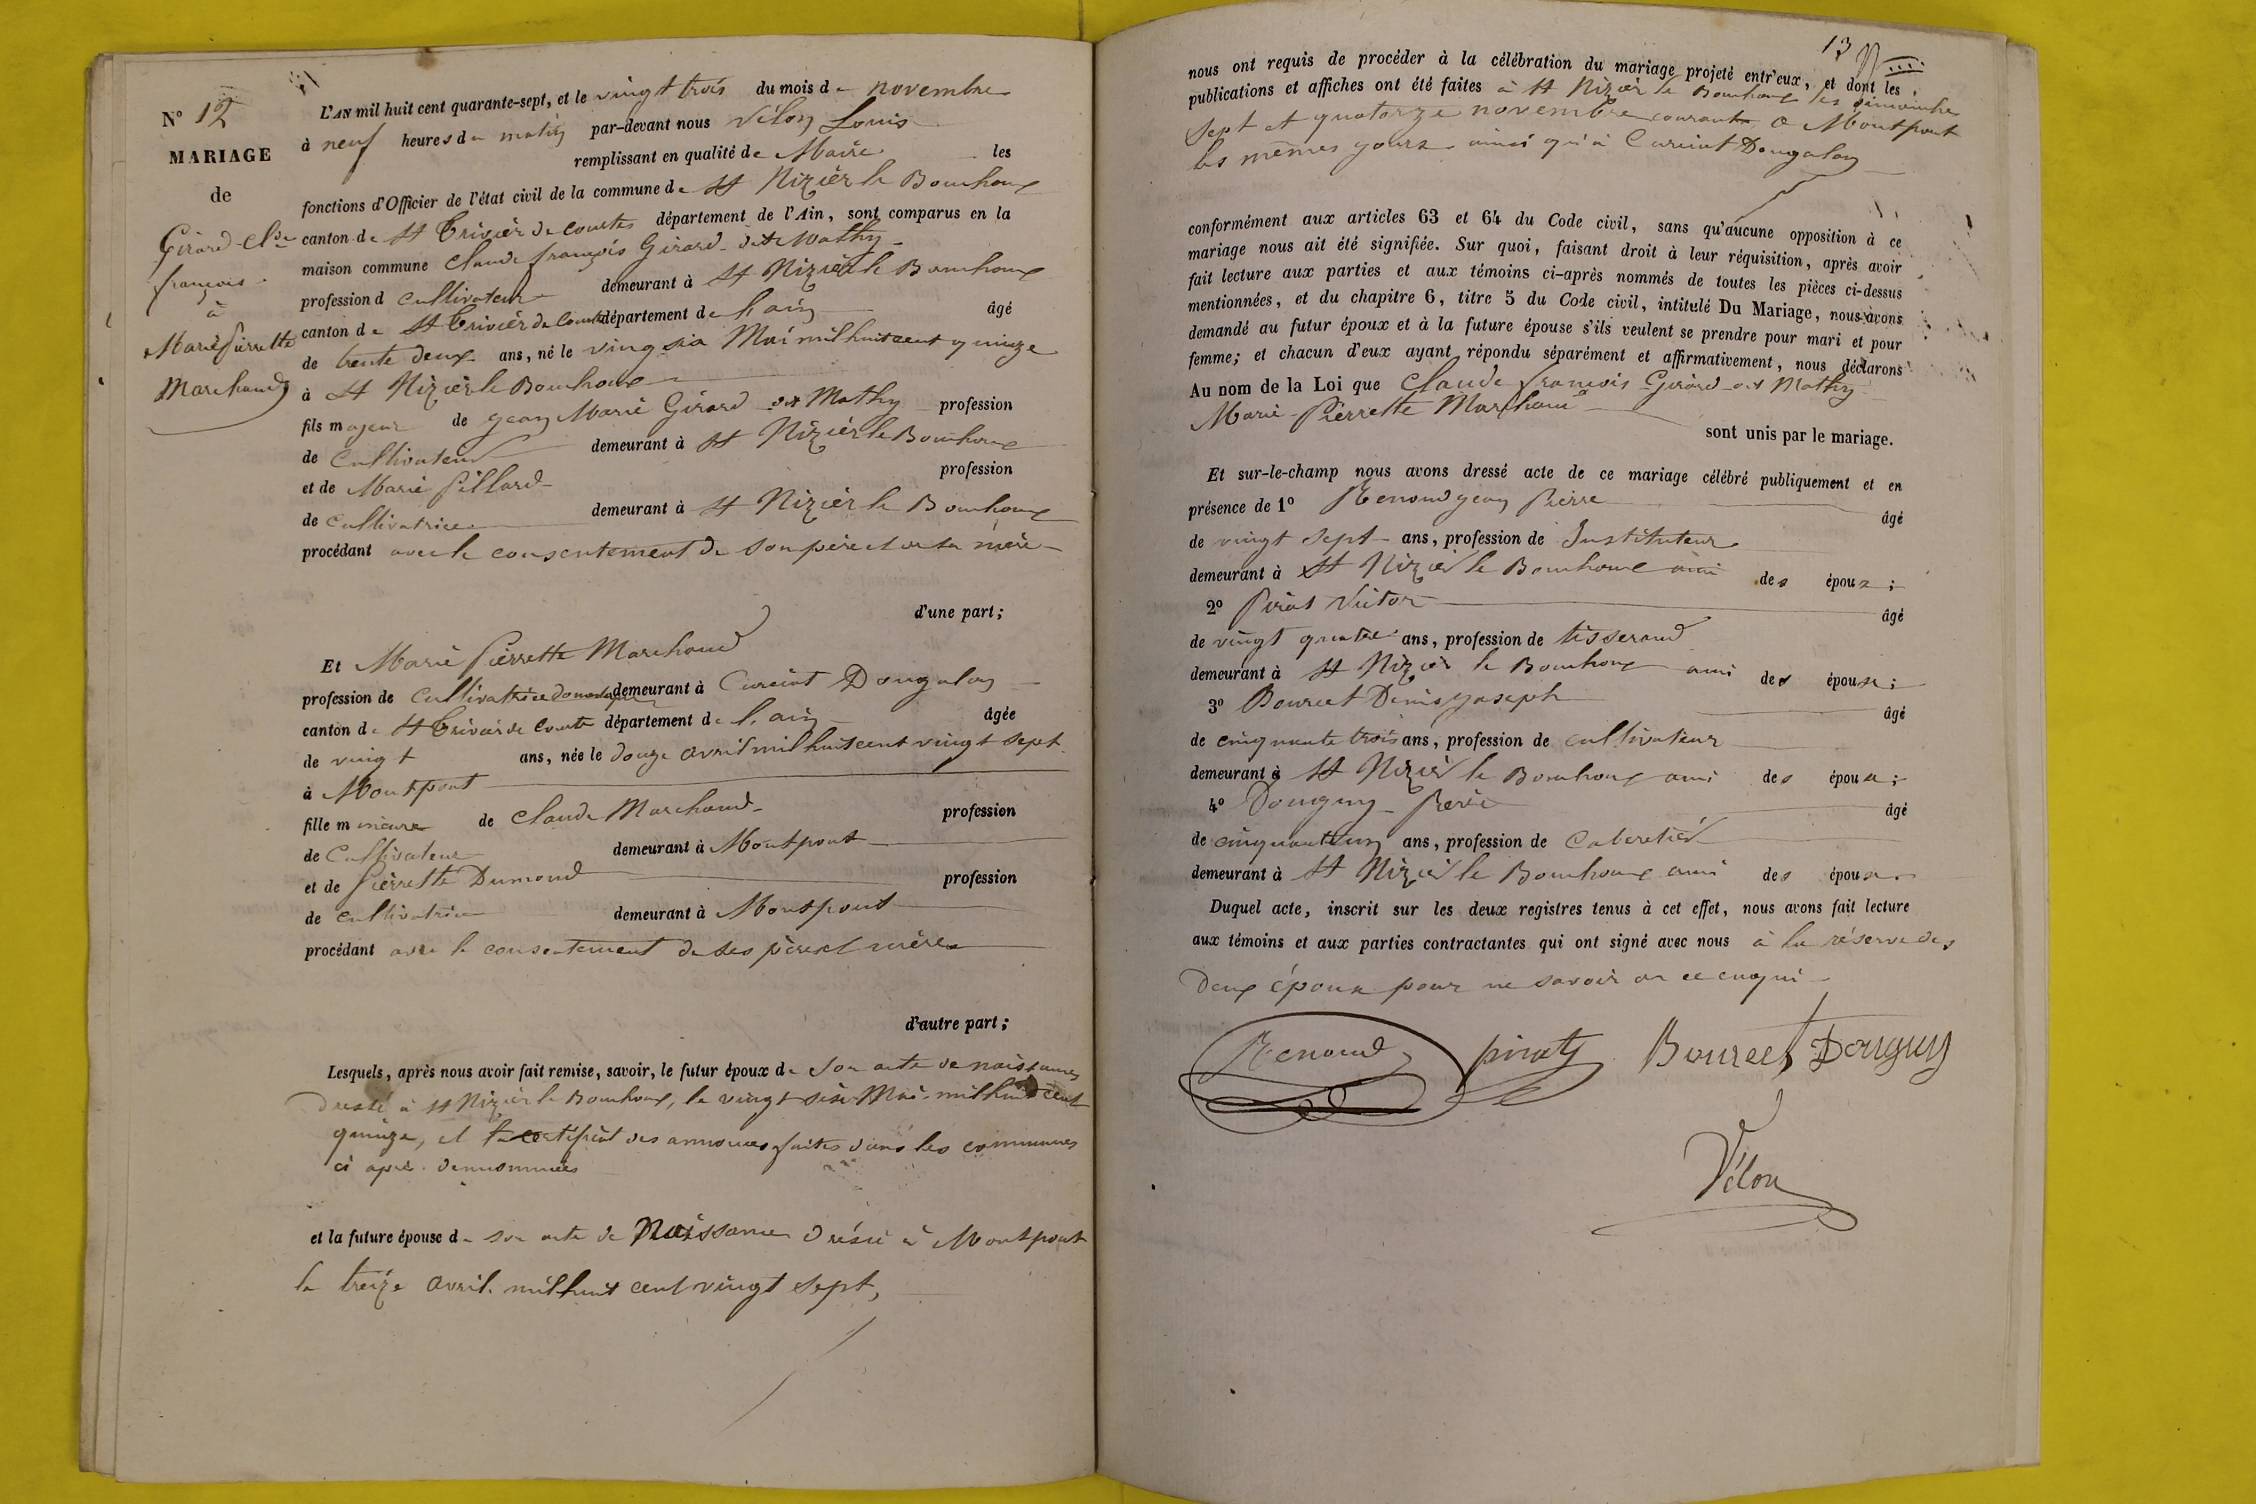 N° 12
MARIAGE
de
Girard Cde
françois
à
Marie Pierrette
Marchand
L'AN mil huit cent quarante-sept, et le vingt trois du mois de novembre
à neuf heures du matin par-devant nous Vélon Louis
remplissant en qualité de Maire les
fonctions d'Officier de l'état civil de la commune de St Nizier le Bouchoux
canton de St Trivier de Courtes département de l'Ain, sont comparus en la
maison commune Claude françois Girard dit Mathy
profession d cultivateur demeurant à St Nizier le Bouchoux
canton de St Trivier de Courtes département de l'ain âgé
de trente deux ans, né le vingt six Mai mil huit cent quinze
à St Nizier le Bouchoux
fils majeur de jean Marie Girard dit Mathy profession
de Cultivateur demeurant à St Nizier le Bouchoux
et de Marie Pillard profession
de cultivatrice demeurant à St Nizier le Bouchoux
procédant avec le consentement de son père et de sa mère
d'une part;
Et Marie Pierrette Marchand
profession de cultivatrice demeurant à Curciat Dongalon
canton de St Trivier de Courtes département de l'ain âgée
de vingt ans, née le douze avril mil huit cent vingt sept
à Montpont
fille mineure de Claude Marchand profession
de Cultivateur demeurant à Montpont
et de Pierrette Dumond profession
de cultivatrice demeurant à Montpont
procédant avec le consentement de ses père et mère
d'autre part;
Lesquels, après nous avoir fait remise, savoir, le futur époux de son acte de naissance
dressé à St Nizier le Bouchoux, le vingt six Mai mil huit cent
quinze, et le certificat des annonces faites dans les communes
ci après dénnommées
et la future épouse de son acte de Naissance dréssé à Montpont
le treize avril mil huit cent vingt sept,
13
nous ont requis de procéder à la célébration du mariage projeté entr'eux, et dont les
publications et affiches ont été faites à St Nizier le Bouchoux les dimanche
sept et quatorze novembre courant, à Montpont
les mêmes jours ainsi qu'à Curciat Dongalon
conformément aux articles 63 et 64 du Code civil, sans qu'aucune opposition à ce
mariage nous ait été signifiée. Sur quoi, faisant droit à leur réquisition, après avoir
fait lecture aux parties et aux témoins ci-après nommés de toutes les pièces ci-dessus
mentionnées, et du chapitre 6, titre 5 du Code civil, intitulé Du Mariage, nous avons
demandé au futur époux et à la future épouse s'ils veulent se prendre pour mari et pour
femme; et chacun d'eux ayant répondu séparément et affirmativement, nous déclarons
Au nom de la Loi que Claude françois Girard dit Mathy
Marie Pierrette Marchand
sont unis par le mariage.
Et sur-le-champ nous avons dressé acte de ce mariage célébré publiquement et en
présence de 1° Renoud jean Pierre âgé
de vingt sept ans, profession de Instituteur
demeurant à St Nizier le Bouchoux ami des époux;
2° Pirat Victor âgé
de vingt quatre ans, profession de tisserand
demeurant à St Nizier le Bouchoux ami des époux;
3° Bourcet Denis joseph âgé
de cinquante trois ans, profession de cultivateur
demeurant à St Nizier le Bouchoux ami des époux;
4° Donguy Pierre âgé
de cinquante un ans, profession de Cabaretier
demeurant à St Nizier le Bouchoux ami des époux
Duquel acte, inscrit sur les deux registres tenus à cet effet, nous avons fait lecture
aux témoins et aux parties contractantes qui ont signé avec nous à la réserve des
deux époux pour ne savoir de ce enquis
Renoud pirat Bourcet Donguy
Vélon